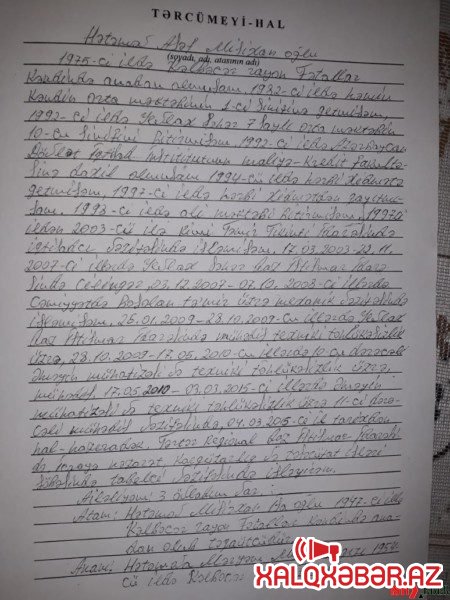 TƏRCÜMEYİ-HAL
Hətəmov Asif Misirxan oğlu
(soyadı, adı, atasının adı)
1975-ci ildə Kəlbəcər rayon Fətallar
kəndində anadan olmuşam. 1982-ci ildə həmin
kəndin orta məktəbinin 1-ci sinifinə getmişəm,
1992-ci ildə Yevlax şəhər 7 saylı orta məktəbin
10-cu sinifini bitirmişəm. 1992-ci ildə Azərbaycan
Dövlət İqtisad İnstitutunun maliyə-kredit fakultə-
sinə daxil olmuşam 1994-cü ildə hərbi xidmətə
getmişəm, 1997-ci ildə hərbi xidmətdən qayıtmı-
şam. 1998-ci ildə ali məktəbi bitirmişəm.
ildən 2003-cü ilə Təmir Tikinti İdarəsində
iqtisadçı vəzifəsində işləmişəm. 17.03.2003-22.11.
2007-ci illərdə Yevlax şəhər Qaz İstismar İdarə-
sində çilingər, 23.12.2007-07.10.2008-ci illərdə
Cəmiyyətdə təmir üzrə mexanik vəzifəsində
işləmişəm. 25.01.2009-28.10.2009-cu illərdə Yevlax
Qaz İstismar İdarəsində mühəndis texniki təhlükəsizlik
üzrə, 28.10.2009-17.05.2010-cu illərdə 10-cu dərəcəli
Əməyin mühafizəsi və texniki təhlükəsizlik üzrə,
mühəndis. 17.05.2010-03.03.2015-ci illərdə Əməyin
mühafizəsi və texniki təhlükəsizlik üzrə 11-ci dərə-
cəli mühəndis vəzifəsində, 04.03.2015-ci il tarixdən
hal-hazıradək Tərtər Regional Qaz İstismar İdarəsin-
də icraya nəzarət, karguzarlıq və təsərrüfat işləri
şöbəsində vəzifəsində işləyirəm.
Ailəliyəm 3 övladım var:
Atam: Hətəmov Misirxan oğlu 1947-ci ildə
Kəlbəcər rayon Fətallar kəndində ana-
dan olub təqaüdçüdür
Anam: Hətəmova Məryəm 1954-
cü ildə Kəlbəcər
XALQXƏBƏR.AZ